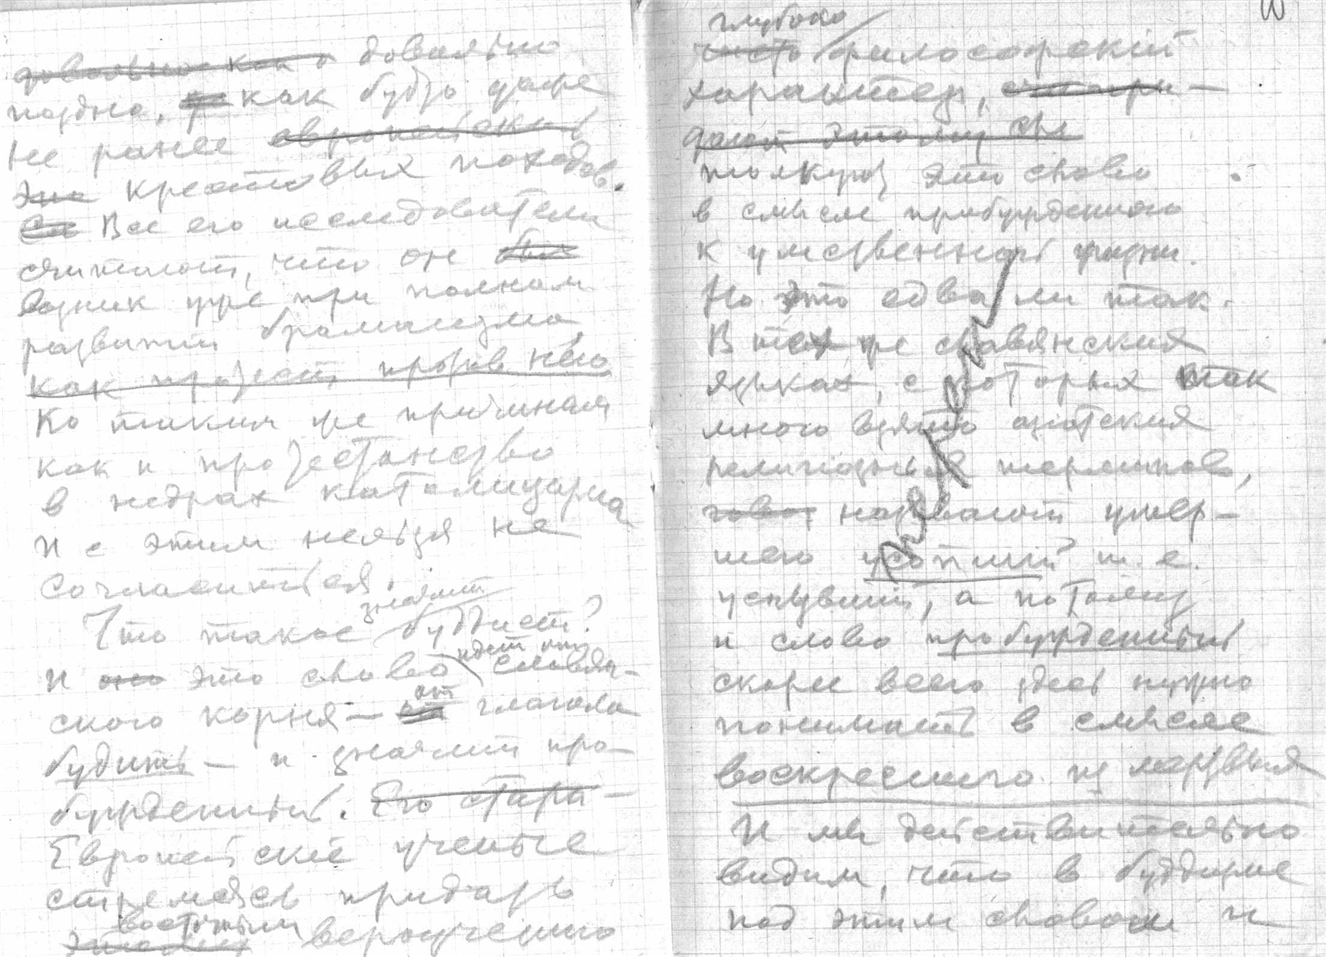 довольно
поздно, как будто даже
не ранее
крестовых походов.
Все его исследователи
считают, что он
возник уже при полном
развитии браманизма
как протест против него
по таким же причинам
как и протестанство
в недрах католицизма
И с этим нельзя не
согласиться.
значит
Что такое буддист?
идет от
И это слово славян-
ского корня — от глагола
будить — и значит про-
бужденный.
Европейские ученые
стремясь придать
восточным
вероучению
глубоко
чисто философский
характер,
толкуют это слово
в смысле пробужденного
к умственной жизни.
Но это едва ли так.
В тех же славянских
языках, с которых так
много взято азотских
религиозных терминов,
называют умер-
шего усопший т. е.
уснувший, а потому
и слово пробужденный
скорее всего здесь нужно
понимать в смысле
воскресшего из мертвых
И мы действительно
видим, что в буддизме
под этим словом и